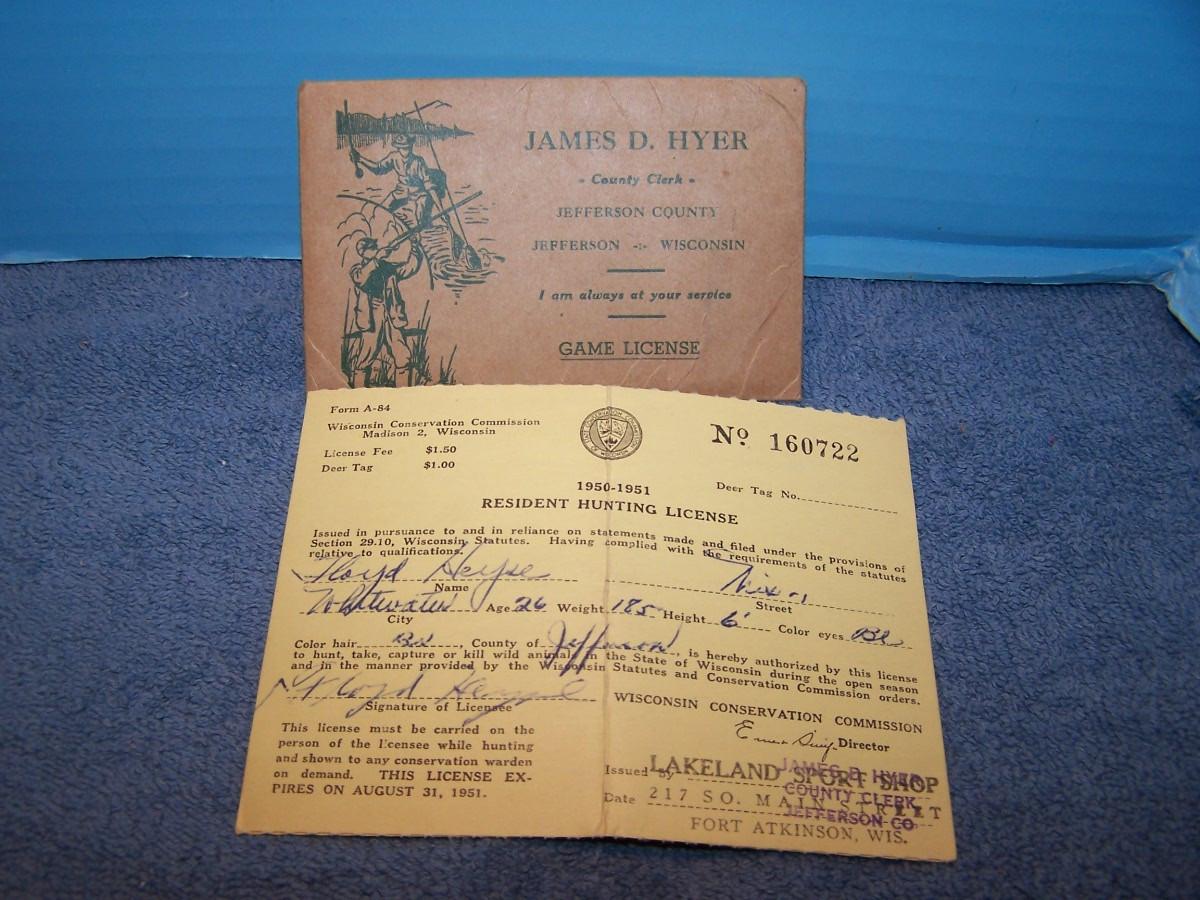 JAMES D. HYER
- County Clerk -
JEFFERSON COUNTY
JEFFERSON -:- WISCONSIN
I am always at your service
GAME LICENSE
Form A-84
Wisconsin Conservation Commission
Madison 2, Wisconsin
License Fee $1.50
Deer Tag $1.00
No 160722
Deer Tag No.
1950-1951
RESIDENT HUNTING LICENSE
Issued in pursuance to and in reliance on statements made and filed under the provisions of
Section 29.10, Wisconsin Statutes. Having complied with the requirements of the statutes
relative to qualifications.
Floyd
Name Street
Whitewater Age 26 Weight 185 Height 6' Color eyes Bl
City
Color hair , County of Jefferson, is hereby authorized by this license
to hunt, take, capture or kill wild animals in the State of Wisconsin during the open season
and in the manner provided by the Wisconsin Statutes and Conservation Commission orders.
Floyd
Signature of Licensee
WISCONSIN CONSERVATION COMMISSION
Director
This license must be carried on the
person of the licensee while hunting
and shown to any conservation warden
on demand. THIS LICENSE EX-
PIRES ON AUGUST 31, 1951.
Issued by LAKELAND SPORT SHOP
JAMES D. HYER
COUNTY CLERK
JEFFERSON CO.
Date 217 SO. MAIN STREET
FORT ATKINSON, WIS.